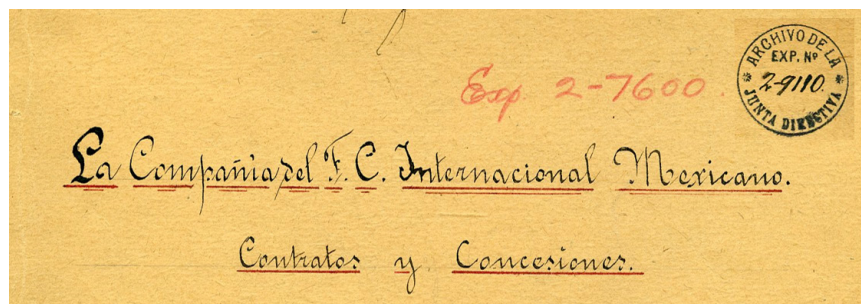 ARCHIVO DE LA
EXP. Nº
2-9110.
JUNTA DIRECTIVA
Exp. 2-7600.
La Compañia del F. C. Internacional Mexicano.
Contratos y Concesiones.